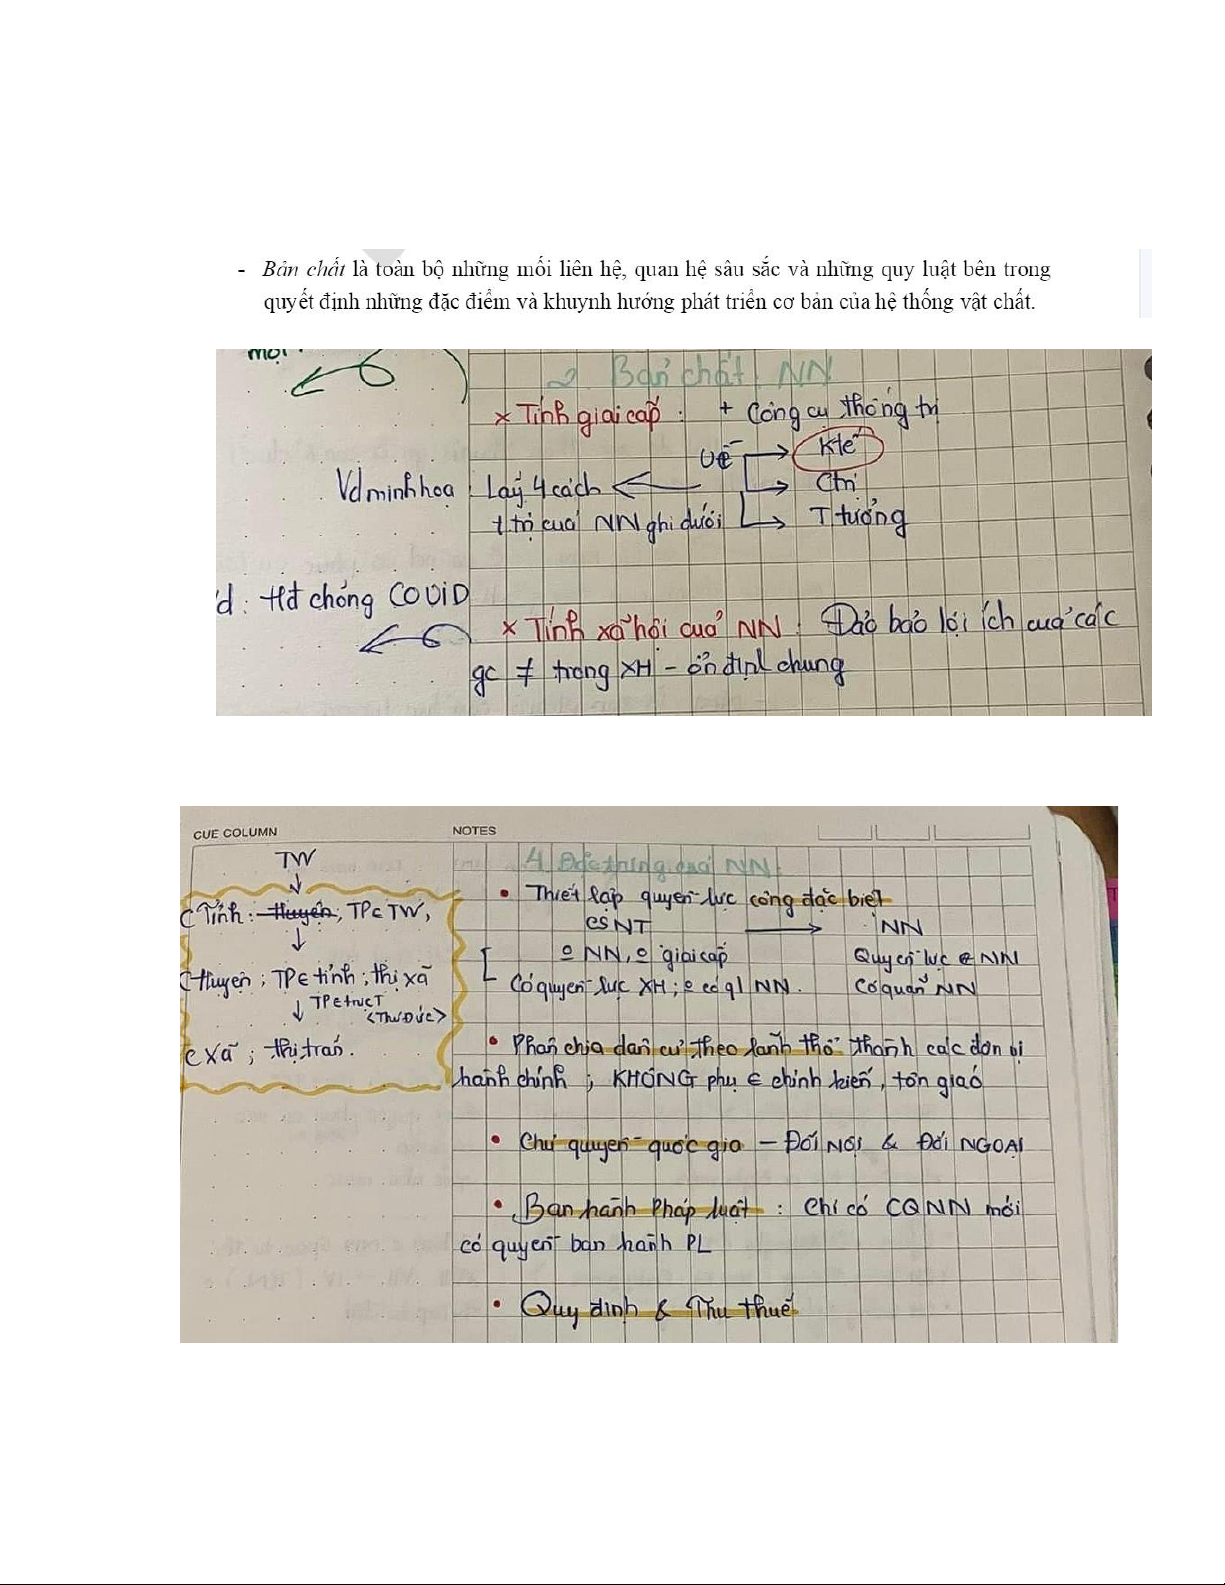 - Bản chất là toàn bộ những mối liên hệ, quan hệ sâu sắc và những quy luật bên trong
quyết định những đặc điểm và khuynh hướng phát triển cơ bản của hệ thống vật chất.
mọi
2. Bản chất NN
× Tính giai cấp : + Công cụ thống trị
Về → Ktế
→ Ctrị
→ T tưởng
Vd minh hoạ : Lấy 4 cách
t trị của NN ghi dưới
d : Hđ chống COVID
× Tính xã hội của NN : Đảo bảo lợi ích của các
gc ≠ trong XH - ổn định chung
CUE COLUMN
TW
↓
Tỉnh : Huyện, TP ∈ TW,
↓
Huyện ; TP ∈ tỉnh ; thị xã
↓ TP ∈ trực T
<Thủ Đức>
xã ; thị trấn.
NOTES
4. Đặc trưng của NN :
• Thiết lập quyền lực công đặc biệt
CSNT → NN
0 NN, 0 giai cấp Quyền lực ∈ NN
Có quyền lực XH ; 0 có ql NN. Có quân NN
• Phân chia dân cư theo lãnh thổ thành các đơn vị
hành chính ; KHÔNG phụ ∈ chính kiến, tôn giáo
• Chủ quyền quốc gia - ĐỐI NỘI & ĐỐI NGOẠI
• Ban hành Pháp luật : Chỉ có CQNN mới
có quyền ban hành PL
• Quy định & Thu thuế